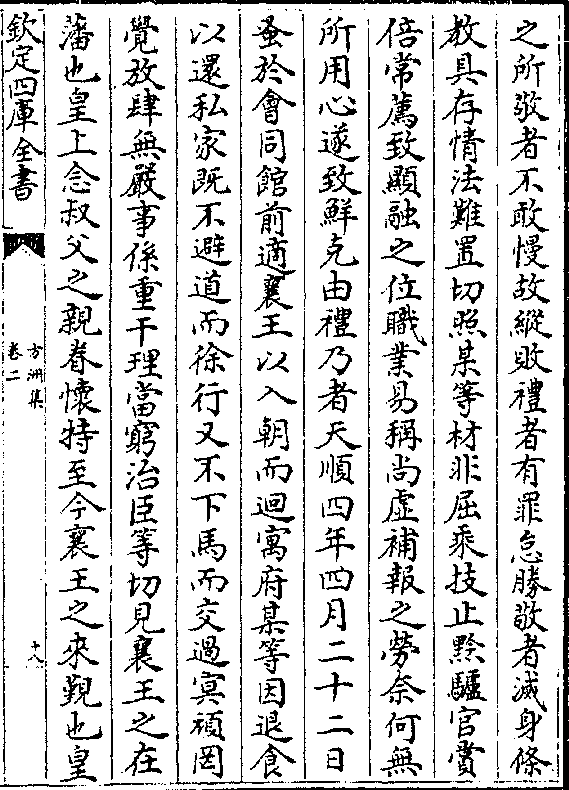 之所敬者不敢慢故縱敗禮者有罪怠勝敬者滅身條
教具存情法難置切照某等材非屈乘技止黔驢官賞
倍常薦致顯融之位職業易稱尚虛補報之勞奈何無
所用心遂致鮮克由禮乃者天順四年四月二十二日
蚤於會同館前適襄王以入朝而迴寓府某等因退食
以還私家既不避道而徐行又不下馬而交過冥頑罔
覺放肆無嚴事係重干理當窮治臣等切見襄王之在
藩也皇上念叔父之親眷懷特至今襄王之來覲也皇
欽定四庫全書
方洲集
卷二
十八